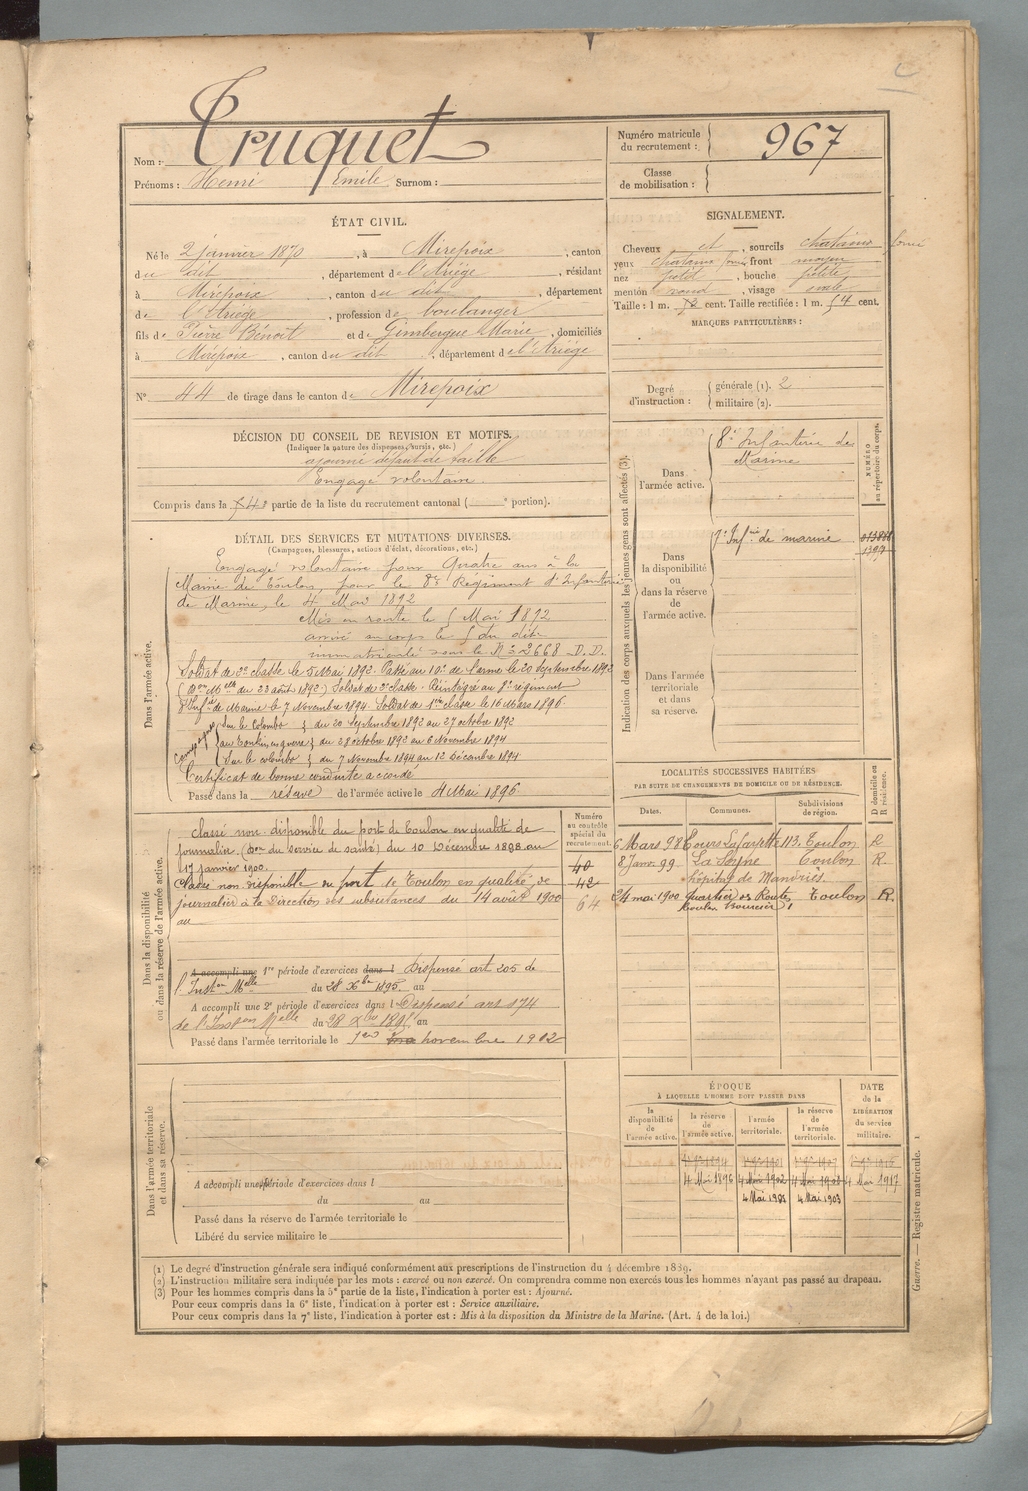 Nom : Truquet
Prénoms : Henri Emile Surnom :
Numéro matricule du recrutement : 967
Classe de mobilisation :
ÉTAT CIVIL.
Né le 2 janvier 1870, à Mirepoix, canton
du dit, département de l'Ariège, résidant
à Mirepoix, canton du dit, département
de l'Ariège, profession de boulanger
fils de Pierre Bénoit et de Gimbergue Marie, domiciliés
à Mirepoix, canton du dit, département de l'Ariège
N° 44 de tirage dans le canton de Mirepoix
SIGNALEMENT.
Cheveux et, sourcils chatains foncé
yeux chatains foncé, front moyen
nez petit, bouche petite
menton rond, visage ovale
Taille : 1 m. 52 cent. Taille rectifiée : 1 m. 54 cent.
MARQUES PARTICULIÈRES :
Degré d'instruction :
générale (1). 2
militaire (2).
DÉCISION DU CONSEIL DE REVISION ET MOTIFS.
(Indiquer la nature des dispenses, sursis, etc.)
ajourné défaut de taille
Engagé volontaire.
Compris dans la 4e partie de la liste du recrutement cantonal ( portion).
DÉTAIL DES SERVICES ET MUTATIONS DIVERSES.
(Campagnes, blessures, actions d'éclat, décorations, etc.)
Dans l'armée active.
Engagé volontaire pour Quatre ans à la
Mairie de Toulon, pour le 8e Régiment d'Infanterie
de Marine, le 4 Mai 1892
Mis en route le 5 Mai 1892
arrivé au corps le 5 du dit
immatriculé sous le N° 2668 D.D.
Soldat de 2e classe le 5 Mai 1892. Passé au 10e de l'arme le 20 Septembre 1892
(Don Melle du 23 août 1892) Soldat de 2e classe. Réintégré au 8e régiment
d'Infie de Marine le 7 Novembre 1894. Soldat de 1ère classe le 16 Mars 1896.
Campagnes
Sur le Colombo } du 20 Septembre 1892 au 27 octobre 1892
au Tonkin en guerre } du 28 octobre 1892 au 6 Novembre 1894
Sur le colombo } du 7 Novembre 1894 au 12 Décembre 1894
Certificat de bonne conduite accordé
Passé dans la réserve de l'armée active le 4 Mai 1896
Indication des corps auxquels les jeunes gens sont affectés (3).
NUMÉRO au répertoire du corps.
Dans l'armée active.
8e Infanterie de
Marine
Dans la disponibilité ou dans la réserve de l'armée active.
7e Infie de marine
Dans l'armée territoriale et dans sa réserve.
LOCALITÉS SUCCESSIVES HABITÉES
PAR SUITE DE CHANGEMENTS DE DOMICILE OU DE RÉSIDENCE.
Dates. Communes. Subdivisions de région. D domicile ou R résidence.
6 Mars 98 Cours Lafayette 113. Toulon R
8 Janv. 99 La Seyne Toulon R.
hôpital de Mandries.
24 mai 1900 Quartier des Routes Toulon R.
Dans la disponibilité ou dans la réserve de l'armée active.
Numéro au contrôle spécial du recrutement.
40
42
64
classé non disponible du port de Toulon en qualité de
journalier. (Don du service de santé) du 10 Décembre 1898 au
17 janvier 1900.
Classé non disponible du port de Toulon en qualité de
journalier à la Direction des subsistances du 14 août 1900
au
A accompli une 1re période d'exercices dans l Dispensé art 205 de
l'Inston Melle du 28 Xbre 1895 au
A accompli une 2e période d'exercices dans l Dispensé art 174
de l'Inston Melle du 28 Xbre 1895 au
Passé dans l'armée territoriale le 1er novembre 1902
Dans l'armée territoriale et dans sa réserve.
A accompli une période d'exercices dans l
du au
Passé dans la réserve de l'armée territoriale le
Libéré du service militaire le
ÉPOQUE
À LAQUELLE L'HOMME DOIT PASSER DANS
DATE de la LIBÉRATION du service militaire.
la disponibilité de l'armée active. la réserve de l'armée active. l'armée territoriale. la réserve de l'armée territoriale.
4 Mai 1896 4 Mai 1902 4 Mai 1908 4 Mai 1917
(1) Le degré d'instruction générale sera indiqué conformément aux prescriptions de l'instruction du 4 décembre 1889.
(2) L'instruction militaire sera indiquée par les mots : exercé ou non exercé. On comprendra comme non exercés tous les hommes n'ayant pas passé au drapeau.
(3) Pour les hommes compris dans la 5e partie de la liste, l'indication à porter est : Ajourné.
Pour ceux compris dans la 6e liste, l'indication à porter est : Service auxiliaire.
Pour ceux compris dans la 7e liste, l'indication à porter est : Mis à la disposition du Ministre de la Marine. (Art. 4 de la loi.)
Guerre. — Registre matricule. 1